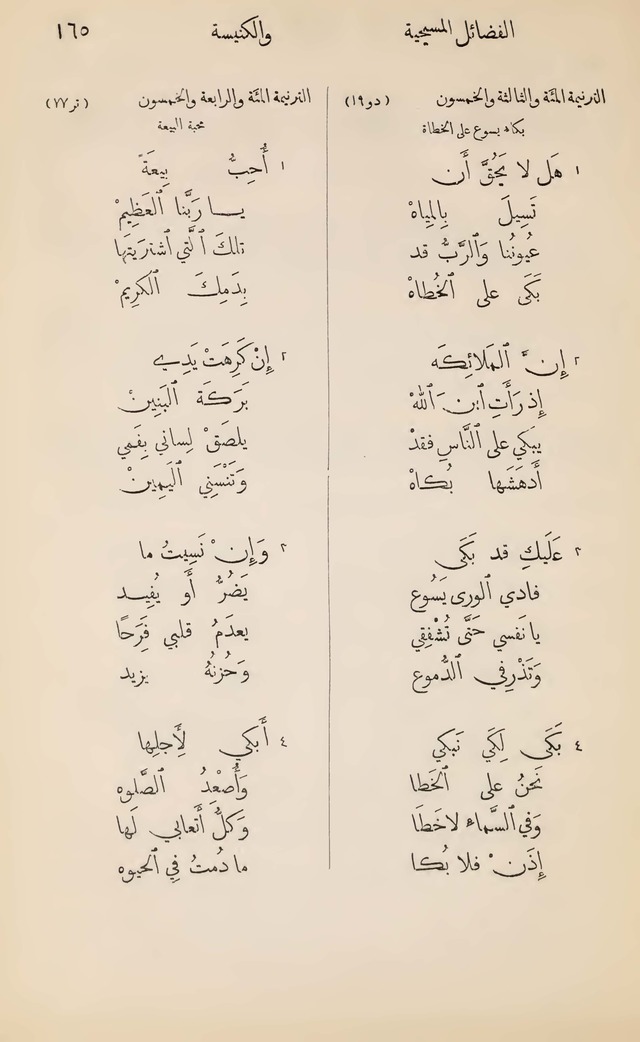 الفضائل المسيحية والكنيسة ١٦٥
الترنيمة المئة والثالثة والخمسون (دو١٩)
بكاء يسوع على الخطاة
١ هَل لا يَحُقَّ أَن
تَسِيلَ بِالمِياهْ
عُيونُنا وَٱلرَّبُّ قد
بَكَى على ٱلخُطاهْ
٢ إِنَّ ٱلمَلائِكَه
إِذ رَأَتِ ٱبنَ ٱللهْ
يبَكي على ٱلنَّاسِ فقدْ
أَدهَشَها بُكاهْ
٣ عَلَيكِ قد بَكَى
فادي ٱلورى يَسُوع
يا نَفسي حَتَّى تُشْفِقي
وَتَذْرِفي ٱلدُّموع
٤ بَكَى لِكَي نَبكي
نَحنُ على ٱلخَطا
وَفي ٱلسَّماء لا خَطَا
إِذَنْ فلا بُكا
الترنيمة المئة والرابعة والخمسون (تر٧٧)
محبة البيعة
١ أُحِبُّ بِيعَةً
يا رَبَّنا ٱلعَظِيمْ
تلكَ ٱلَّتي ٱشتَرَيتَها
بِدَمِكَ ٱلكَرِيمْ
٢ إِنْ كَرِهَتْ يَدِي
بَرَكَةَ ٱلبَنِينْ
يلصَقْ لِساني بِفَمي
وَتَنْسَنِي ٱليَمِينْ
٣ وَإِنْ نَسِيتُ ما
يَضُرُّ أَو يُفِيد
يعدَمُ قلبي فَرَحًا
وَحُزنُهُ يزيد
٤ أَبكي لِأَجلِها
وَأُصْعِدُ ٱلصَّلوه
وَكلُّ أَتعابي لَها
ما دُمتُ فِي ٱلحيوه